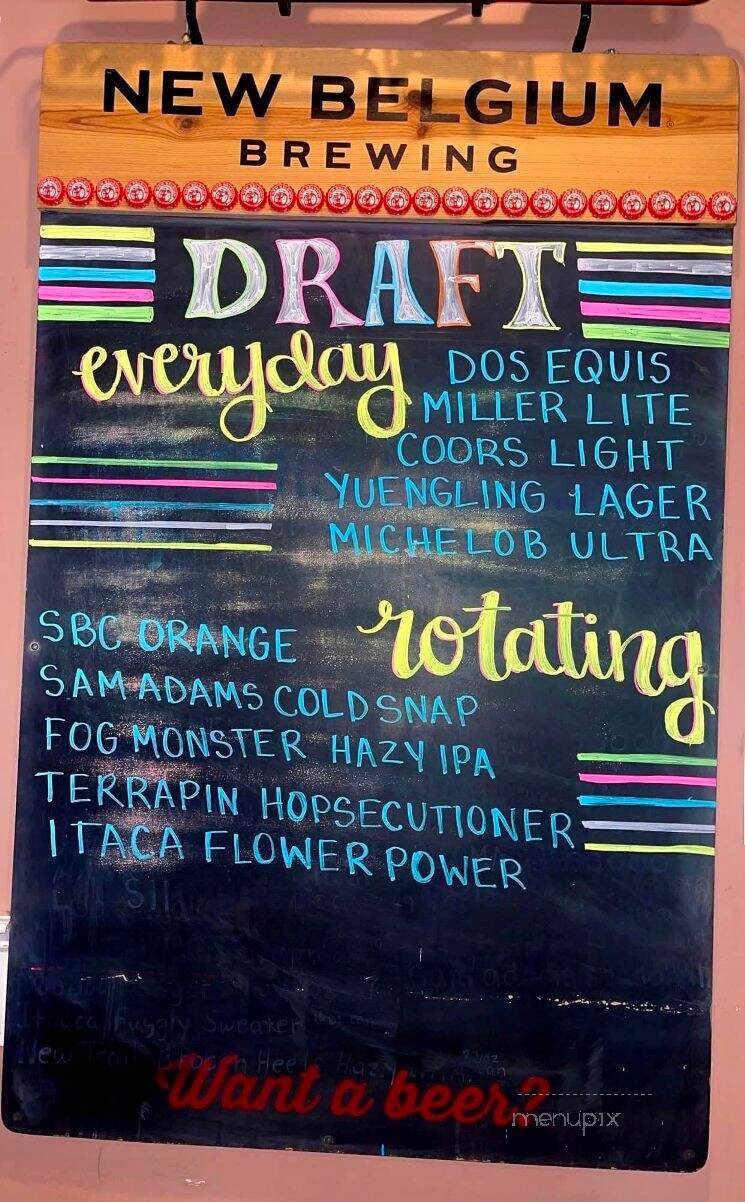 NEW BELGIUM
BREWING
DRAFT
everyday
DOS EQUIS
MILLER LITE
COORS LIGHT
YUENGLING LAGER
MICHELOB ULTRA
rotating
SBC ORANGE
SAM ADAMS COLD SNAP
FOG MONSTER HAZY IPA
TERRAPIN HOPSECUTIONER
ITACA FLOWER POWER
Fuggly Sweater
New
Want a beer?
menupix